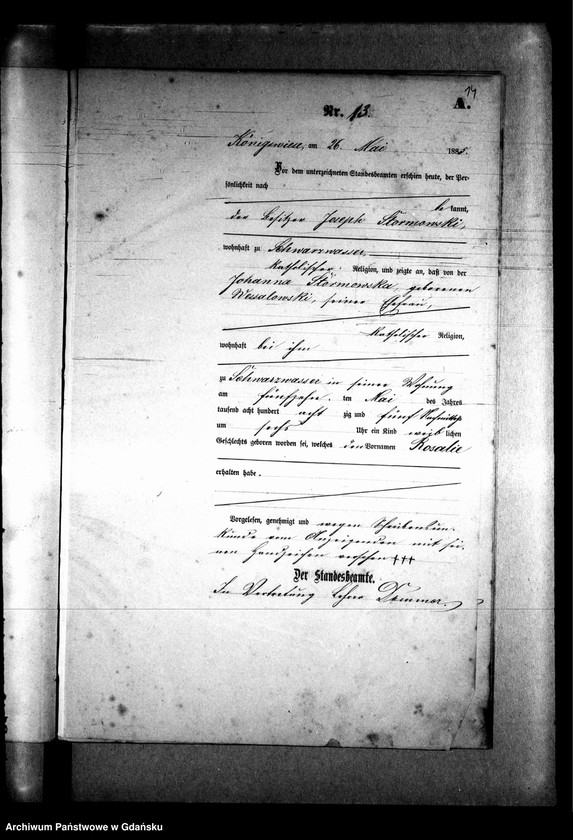 14
A.
Nr. 13.
Königswiese, am 26. Mai 1885.
Vor dem unterzeichneten Standesbeamten erschien heute, der Per-
sönlichkeit nach
be kannt,
der Besitzer Joseph Stormowski,
wohnhaft zu Schwarzwasser,
katholischer Religion, und zeigte an, daß von der
Johanna Stormowska, geborenen
Wessalowski, seiner Ehefrau,
katholischer Religion,
wohnhaft bei ihm
zu Schwarzwasser in seiner Wohnung
am fünfzehn ten Mai des Jahres
tausend acht hundert acht zig und fünf Nachmittags
um sechs Uhr ein Kind weib lichen
Geschlechts geboren worden sei, welches den Vornamen Rosalie
erhalten habe.
Vorgelesen, genehmigt und wegen Schreibensun-
kunde vom Anzeigenden mit sei-
nen Handzeichen versehen +++
Der Standesbeamte.
In Vertretung
Archiwum Państwowe w Gdańsku